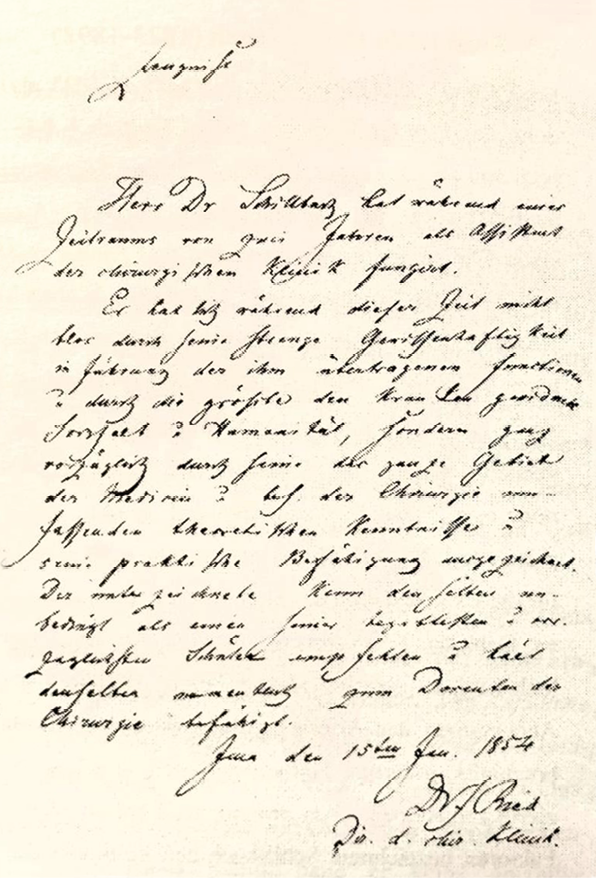 Zeugniss
Herr Dr Schillbach hat während eines
Zeitraums von zwei Jahren als Assistent
der chirurgischen Klinik fungirt.
Er hat sich während dieser Zeit nicht
blos durch seine strenge Gewissenhaftigkeit
in Führung der ihm übertragenen Functionen
u durch die größte den Kranken gewidmete
Sorgfalt u Humanität, sondern ganz
vorzüglich durch seine das ganze Gebiet
der Medicin u bes. der Chirurgie um-
fassenden theoretischen Kenntnisse u
seine praktische Befähigung ausgezeichnet.
Der unterzeichnete kann denselben un-
bedingt als einen seiner begabtesten u vor-
züglichsten Schüler empfehlen u hält
denselben namentlich zum Docenten der
Chirurgie befähigt.
Jena den 15ten Jan. 1854
Dr F Ried
Dir. d. chir. Klinik.